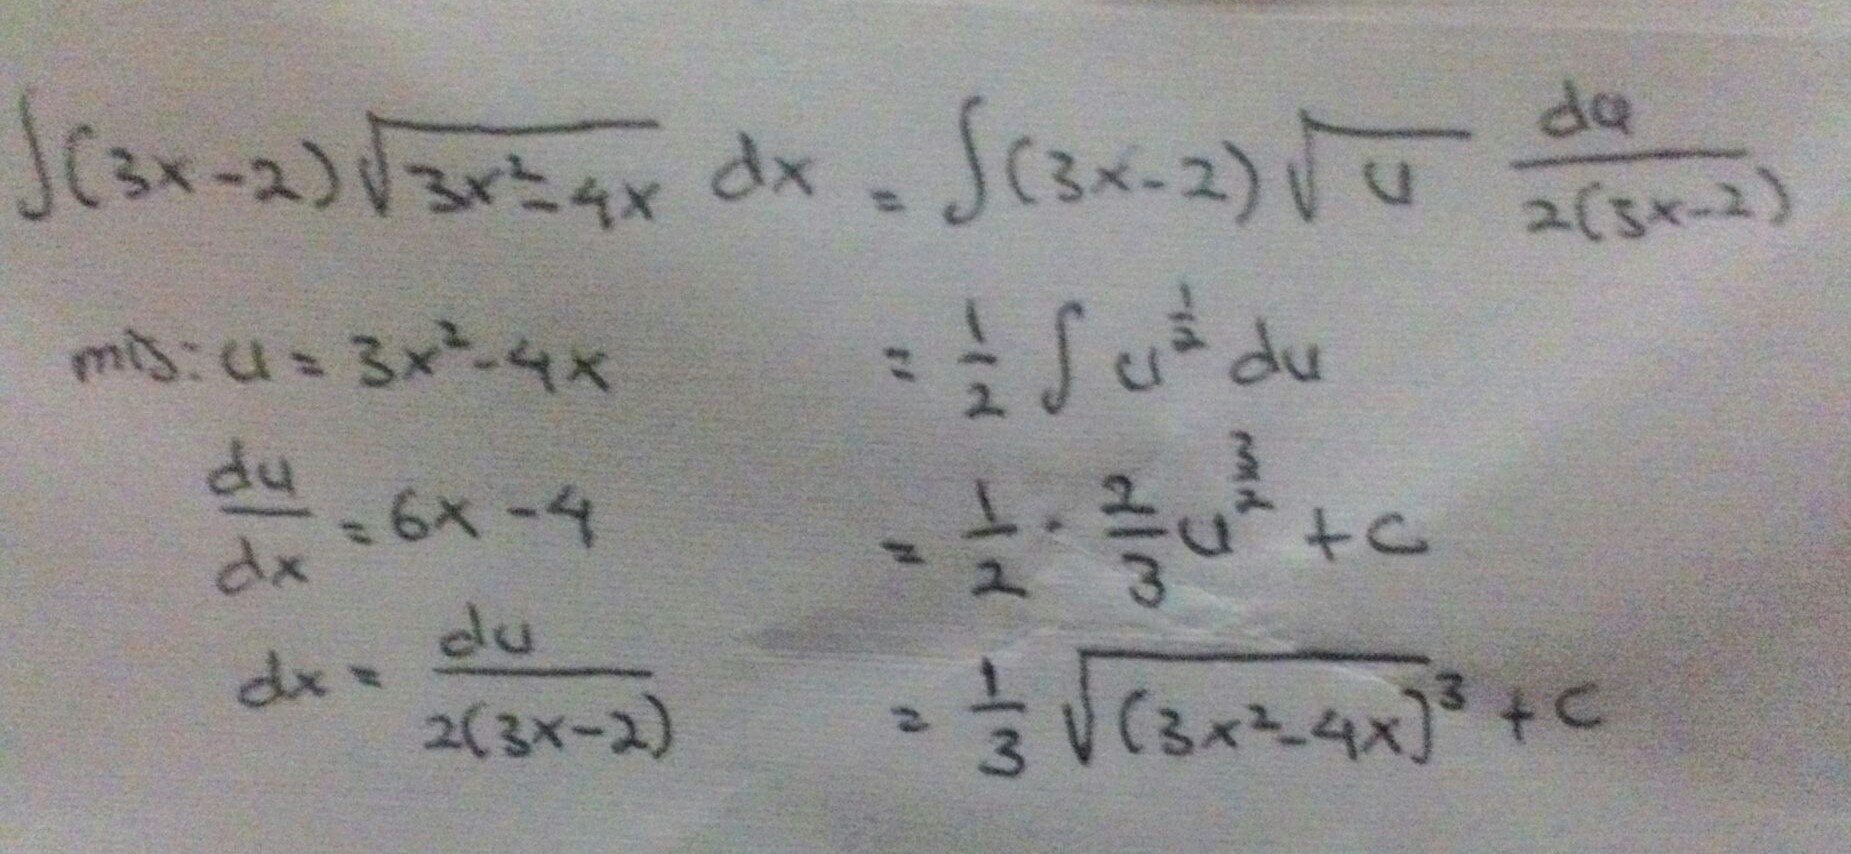 ∫(3x-2)√(3x²-4x) dx = ∫(3x-2)√u du/2(3x-2)
mis: u = 3x²-4x = 1/2 ∫ u^(1/2) du
du/dx = 6x-4 = 1/2 · 2/3 u^(3/2) + c
dx = du/2(3x-2) = 1/3 √(3x²-4x)³ + c